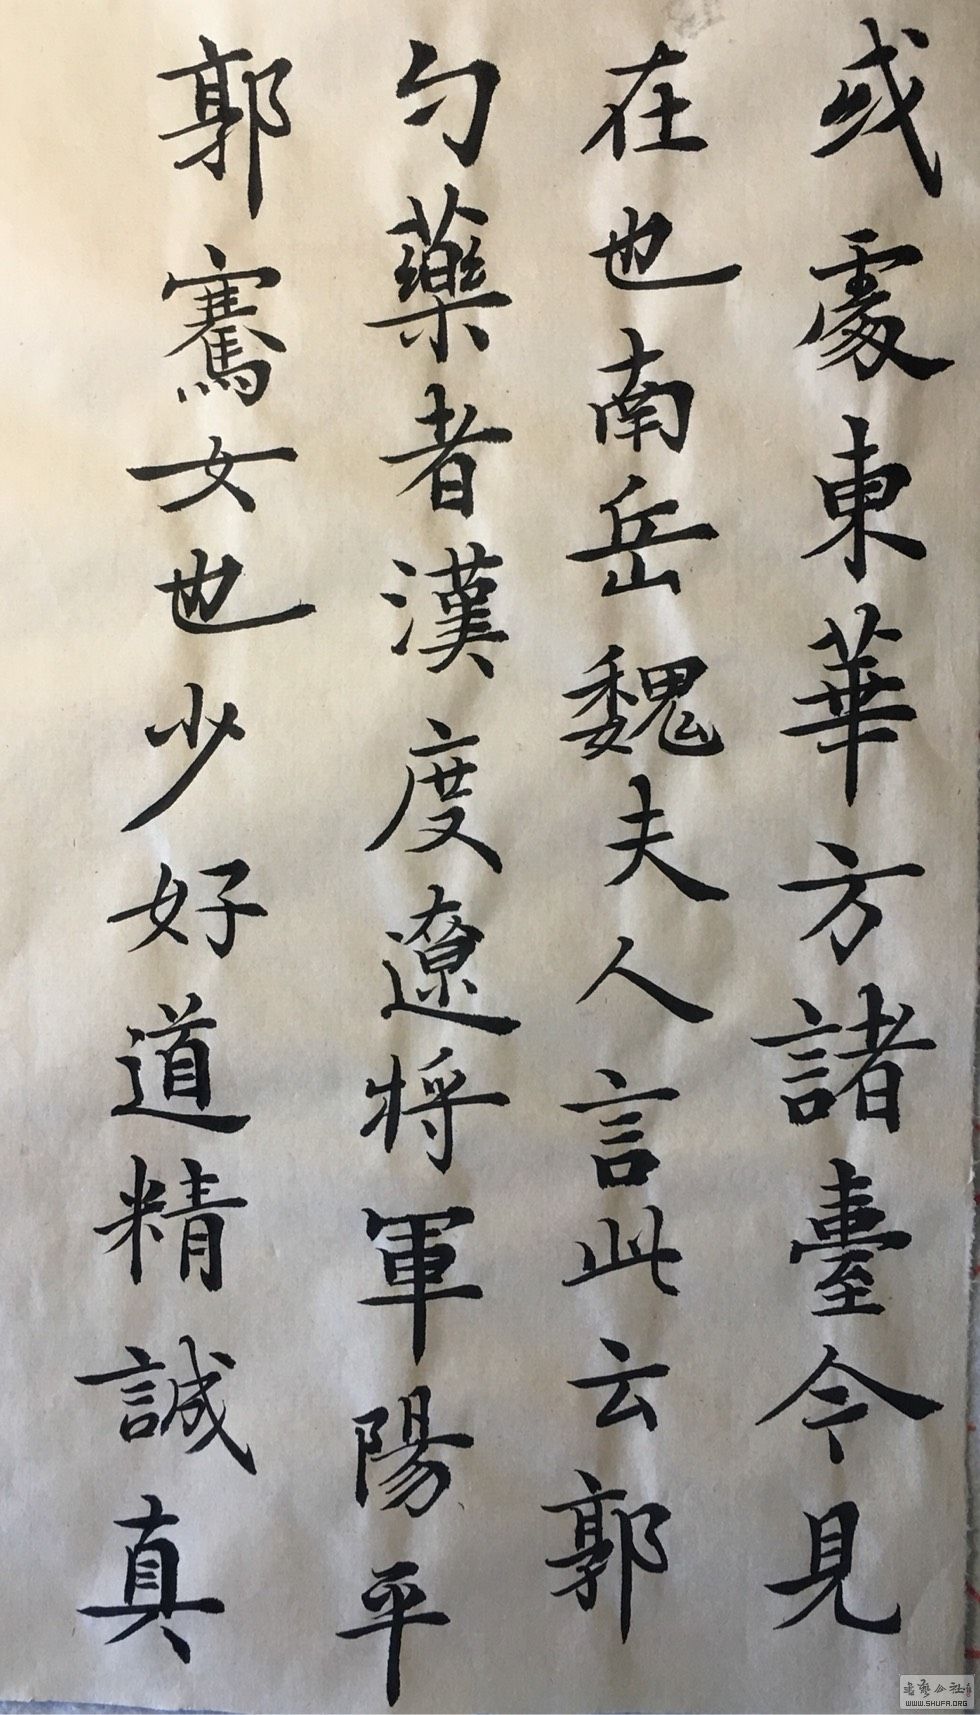 或處東華方諸臺今見
在也南岳魏夫人言此云郭
勺藥者漢度遼將軍陽平
郭騫女也少好道精誠真
WWW.SHUFA.ORG